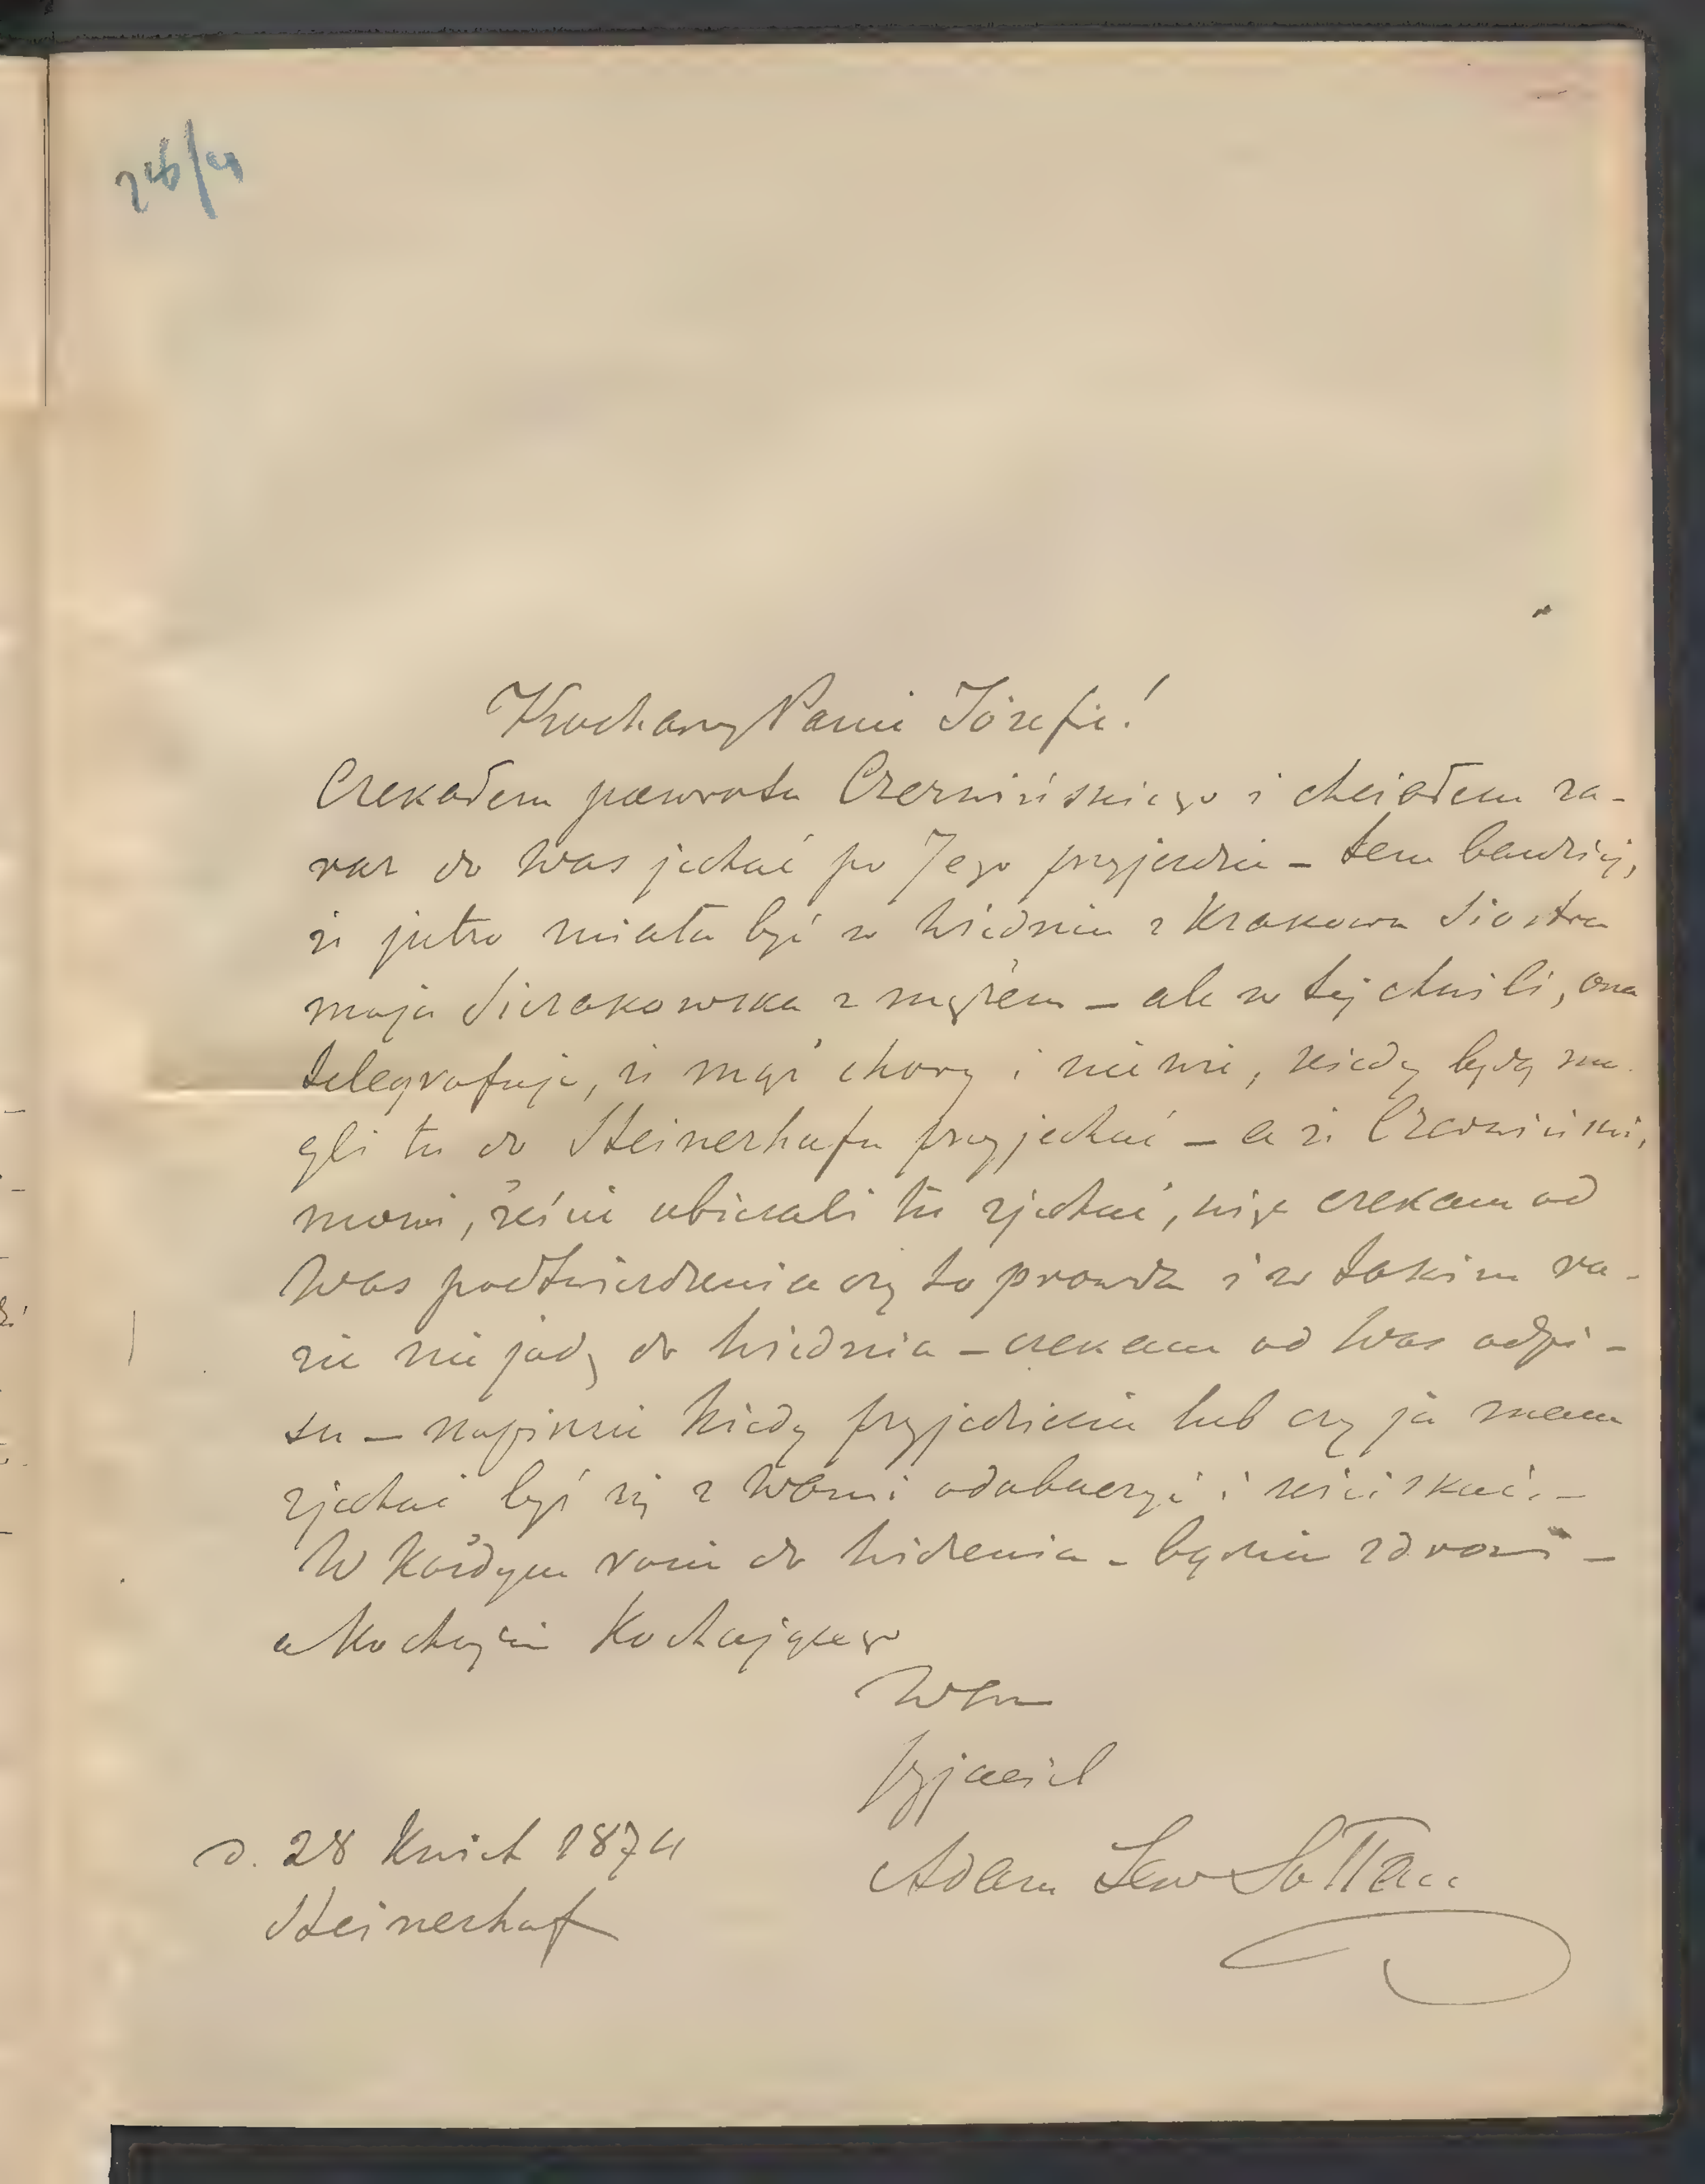 Kochany Panie Józefie!
Czekałem powrotu Czerwińskiego i chciałem za-
raz do Was jechać po Jego przyjeździe – tem bardziej,
że jutro miała być w Wiedniu z Krakowa Siostra
moja Sierakowska z mężem – ale w tej chwili, ona
telegrafuje, że mąż chory i nie wie, kiedy będą mo-
gli tu do Steinerhofu przyjechać – a że Czerwiński,
mówi, żeście obiecali tu zjechać, więc czekam od
Was podtwierdzenia czy to prawda i w takim ra-
zie nie jadę do Wiednia – czekam od Was odpi-
su – napiszcie kiedy przyjedziecie lub czy ja mam
zjechać być się z Wami odobaczyć i uściskać. –
W każdym razie do widzenia – bądźcie zdrowi –
a kochajcie kochającego
Was
przyjaciel
Adam Lew Sołtan
d. 28 Kwiet 1874
Steinerhof